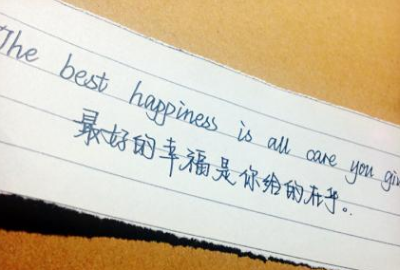 The best happiness is all care you giv
最好的幸福是你给的在乎。